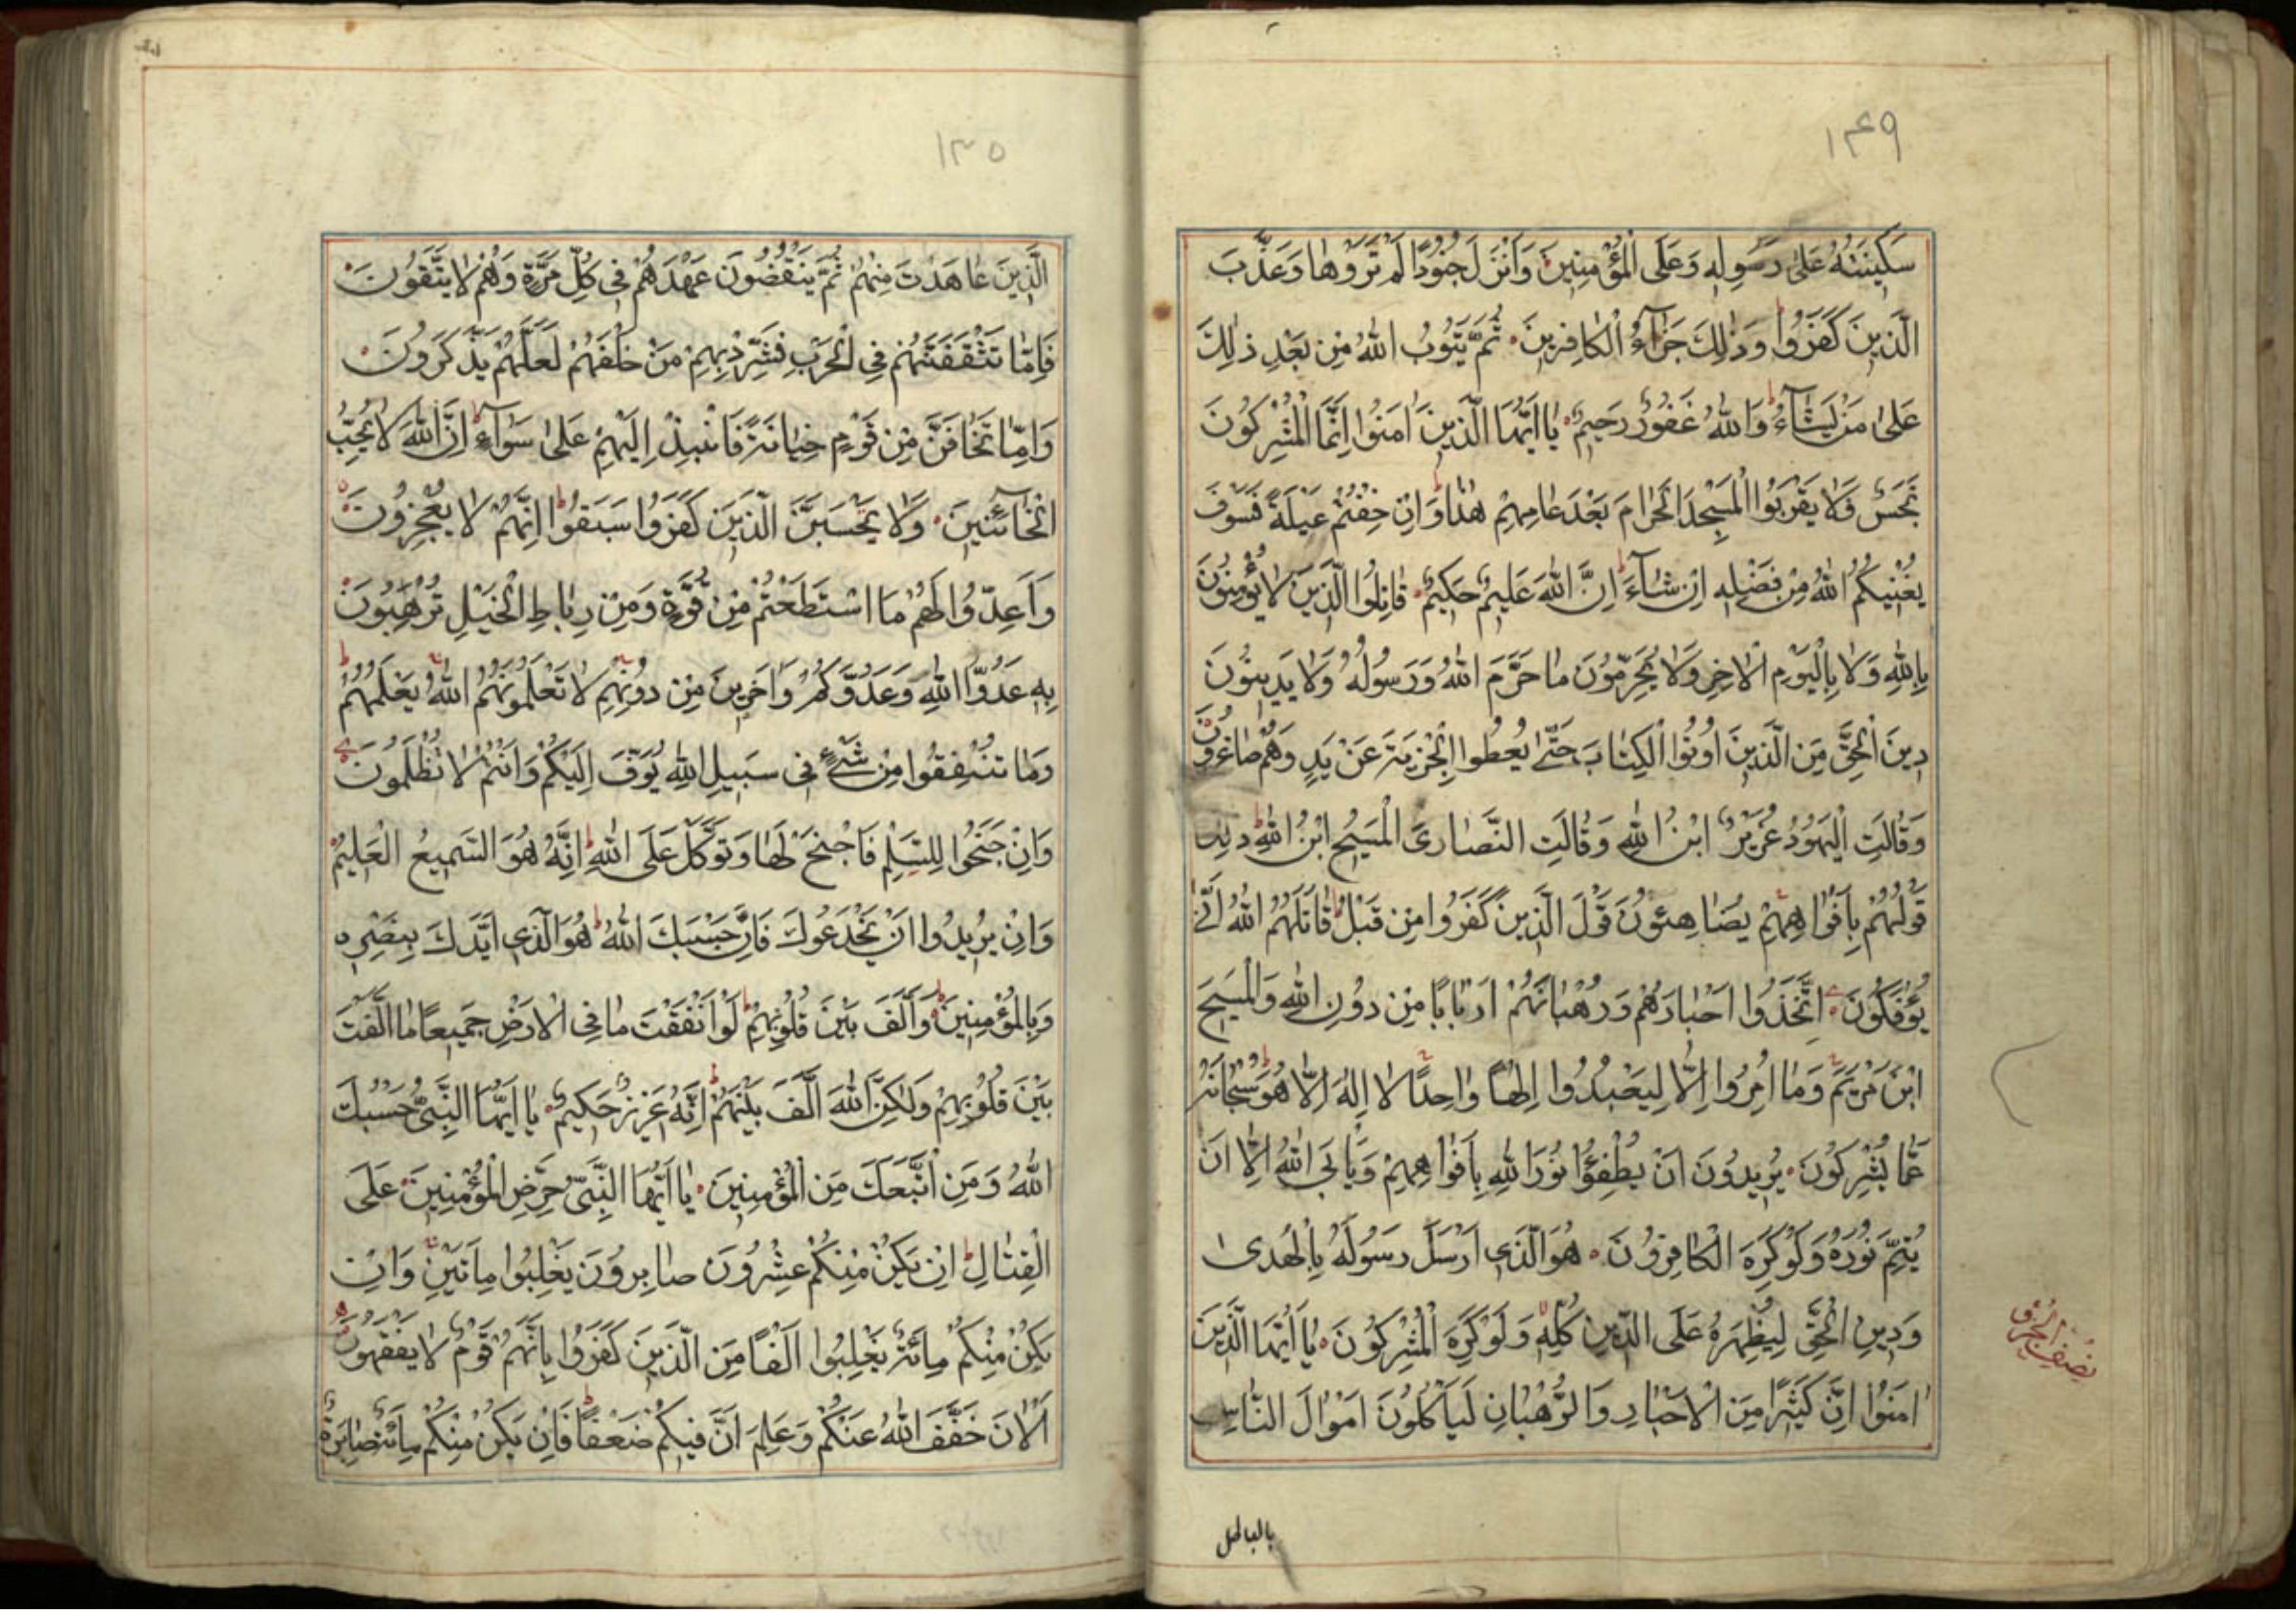 ١٤٩
سَكِينَتَهُ عَلىٰ رَسُولِهِ وَعَلَى الْمُؤْمِنِينَ وَأَنْزَلَ جُنُودًا لَمْ تَرَوْهٰا وَعَذَّبَ
الَّذِينَ كَفَرُوا وَذٰلِكَ جَزٰآءُ الْكٰافِرِينَ ثُمَّ يَتُوبُ اللهُ مِنْ بَعْدِ ذٰلِكَ
عَلىٰ مَنْ يَشٰآءُ وَاللهُ غَفُورٌ رَحِيمٌ يٰا اَيُّهَا الَّذِينَ اٰمَنُوا اِنَّمَا الْمُشْرِكُونَ
نَجَسٌ فَلٰا يَقْرَبُوا الْمَسْجِدَ الْحَرٰامَ بَعْدَ عٰامِهِمْ هٰذٰا وَاِنْ خِفْتُمْ عَيْلَةً فَسَوْفَ
يُغْنِيكُمُ اللهُ مِنْ فَضْلِهِ اِنْ شٰآءَ اِنَّ اللهَ عَلِيمٌ حَكِيمٌ قٰاتِلُوا الَّذِينَ لٰا يُؤْمِنُونَ
بِاللهِ وَلٰا بِالْيَوْمِ الْاٰخِرِ وَلٰا يُحَرِّمُونَ مٰا حَرَّمَ اللهُ وَرَسُولُهُ وَلٰا يَدِينُونَ
دِينَ الْحَقِّ مِنَ الَّذِينَ اُوتُوا الْكِتٰابَ حَتّٰى يُعْطُوا الْجِزْيَةَ عَنْ يَدٍ وَهُمْ صٰاغِرُونَ
وَقٰالَتِ الْيَهُودُ عُزَيْرٌ ابْنُ اللهِ وَقٰالَتِ النَّصٰارَى الْمَسِيحُ ابْنُ اللهِ ذٰلِكَ
قَوْلُهُمْ بِاَفْوٰاهِهِمْ يُضٰاهِئُونَ قَوْلَ الَّذِينَ كَفَرُوا مِنْ قَبْلُ قٰاتَلَهُمُ اللهُ اَنّٰى
يُؤْفَكُونَ اتَّخَذُوا اَحْبٰارَهُمْ وَرُهْبٰانَهُمْ اَرْبٰابًا مِنْ دُونِ اللهِ وَالْمَسِيحَ
ابْنَ مَرْيَمَ وَمٰا اُمِرُوا اِلّٰا لِيَعْبُدُوا اِلٰهًا وٰاحِدًا لٰا اِلٰهَ اِلّٰا هُوَ سُبْحٰانَهُ
عَمّٰا يُشْرِكُونَ يُرِيدُونَ اَنْ يُطْفِؤُا نُورَ اللهِ بِاَفْوٰاهِهِمْ وَيَاْبَى اللهُ اِلّٰا اَنْ
يُتِمَّ نُورَهُ وَلَوْ كَرِهَ الْكٰافِرُونَ هُوَ الَّذِي اَرْسَلَ رَسُولَهُ بِالْهُدىٰ
وَدِينِ الْحَقِّ لِيُظْهِرَهُ عَلَى الدِّينِ كُلِّهِ وَلَوْ كَرِهَ الْمُشْرِكُونَ يٰا اَيُّهَا الَّذِينَ
اٰمَنُوا اِنَّ كَثِيرًا مِنَ الْاَحْبٰارِ وَالرُّهْبٰانِ لَيَاْكُلُونَ اَمْوٰالَ النّٰاسِ
بالباطل
نصف الجزء
١٣٥
الَّذِينَ عٰاهَدْتَ مِنْهُمْ ثُمَّ يَنْقُضُونَ عَهْدَهُمْ فِي كُلِّ مَرَّةٍ وَهُمْ لٰا يَتَّقُونَ
فَاِمّٰا تَثْقَفَنَّهُمْ فِي الْحَرْبِ فَشَرِّدْ بِهِمْ مَنْ خَلْفَهُمْ لَعَلَّهُمْ يَذَّكَّرُونَ
وَاِمّٰا تَخٰافَنَّ مِنْ قَوْمٍ خِيٰانَةً فَانْبِذْ اِلَيْهِمْ عَلىٰ سَوٰآءٍ اِنَّ اللهَ لٰا يُحِبُّ
الْخٰآئِنِينَ وَلٰا يَحْسَبَنَّ الَّذِينَ كَفَرُوا سَبَقُوا اِنَّهُمْ لٰا يُعْجِزُونَ
وَاَعِدُّوا لَهُمْ مَا اسْتَطَعْتُمْ مِنْ قُوَّةٍ وَمِنْ رِبٰاطِ الْخَيْلِ تُرْهِبُونَ
بِهِ عَدُوَّ اللهِ وَعَدُوَّكُمْ وَاٰخَرِينَ مِنْ دُونِهِمْ لٰا تَعْلَمُونَهُمُ اللهُ يَعْلَمُهُمْ
وَمٰا تُنْفِقُوا مِنْ شَيْءٍ فِي سَبِيلِ اللهِ يُوَفَّ اِلَيْكُمْ وَاَنْتُمْ لٰا تُظْلَمُونَ
وَاِنْ جَنَحُوا لِلسَّلْمِ فَاجْنَحْ لَهٰا وَتَوَكَّلْ عَلَى اللهِ اِنَّهُ هُوَ السَّمِيعُ الْعَلِيمُ
وَاِنْ يُرِيدُوا اَنْ يَخْدَعُوكَ فَاِنَّ حَسْبَكَ اللهُ هُوَ الَّذِي اَيَّدَكَ بِنَصْرِهِ
وَبِالْمُؤْمِنِينَ وَاَلَّفَ بَيْنَ قُلُوبِهِمْ لَوْ اَنْفَقْتَ مٰا فِي الْاَرْضِ جَمِيعًا مٰا اَلَّفْتَ
بَيْنَ قُلُوبِهِمْ وَلٰكِنَّ اللهَ اَلَّفَ بَيْنَهُمْ اِنَّهُ عَزِيزٌ حَكِيمٌ يٰا اَيُّهَا النَّبِيُّ حَسْبُكَ
اللهُ وَمَنِ اتَّبَعَكَ مِنَ الْمُؤْمِنِينَ يٰا اَيُّهَا النَّبِيُّ حَرِّضِ الْمُؤْمِنِينَ عَلَى
الْقِتٰالِ اِنْ يَكُنْ مِنْكُمْ عِشْرُونَ صٰابِرُونَ يَغْلِبُوا مِاَتَيْنِ وَاِنْ
يَكُنْ مِنْكُمْ مِائَةٌ يَغْلِبُوا اَلْفًا مِنَ الَّذِينَ كَفَرُوا بِاَنَّهُمْ قَوْمٌ لٰا يَفْقَهُونَ
اَلْاٰنَ خَفَّفَ اللهُ عَنْكُمْ وَعَلِمَ اَنَّ فِيكُمْ ضَعْفًا فَاِنْ يَكُنْ مِنْكُمْ مِائَةٌ صٰابِرَةٌ